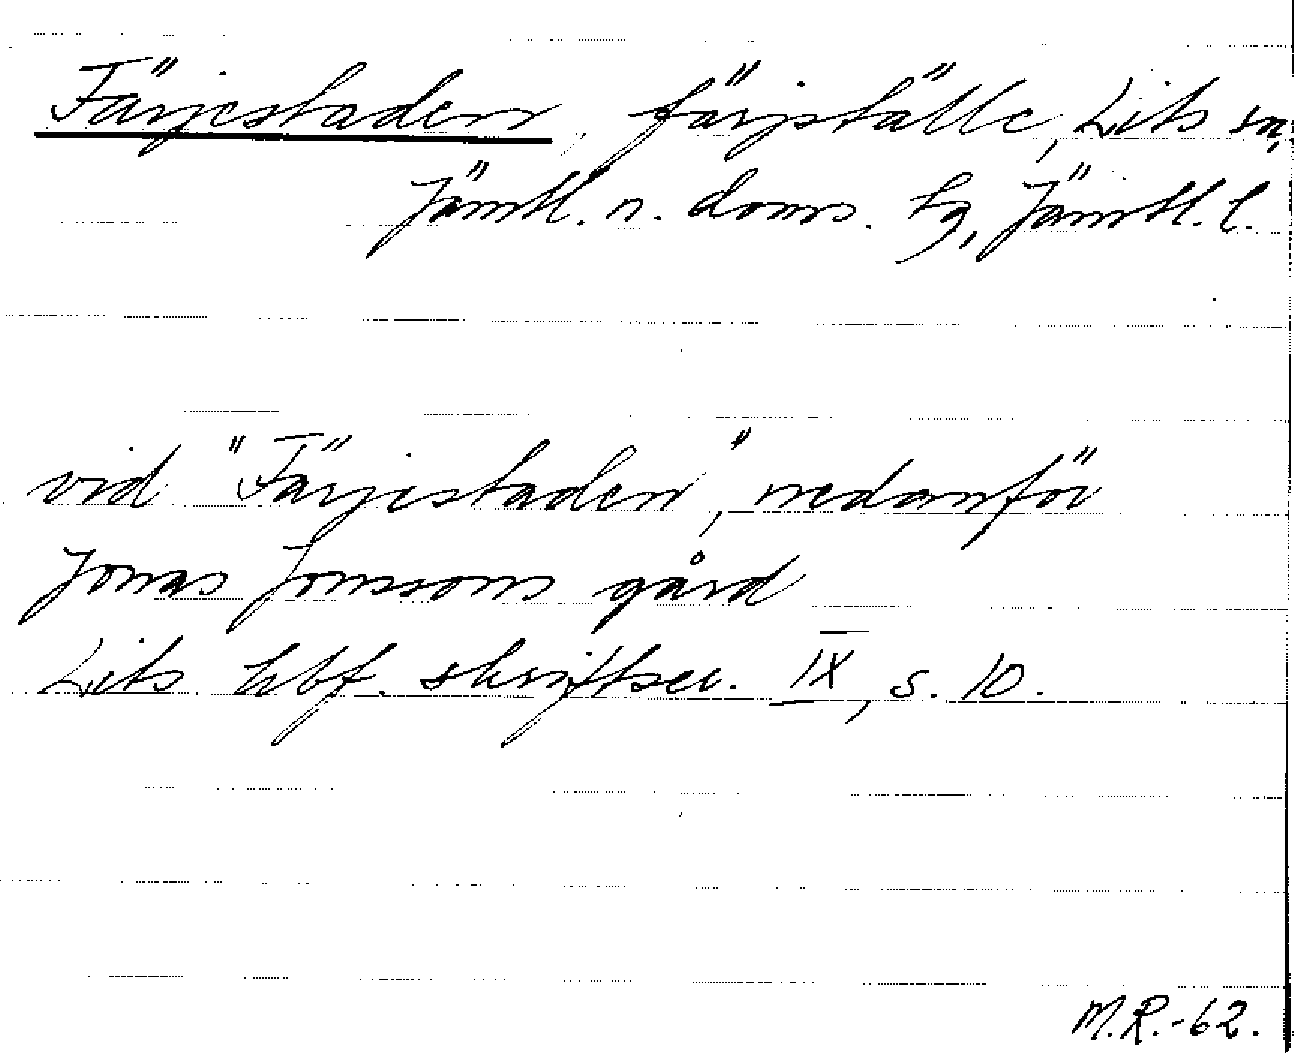 Färjestaden, färjställe, Lits sn,
Jämtl. n. doms. tg, Jämtl. l.
vid "Färjestaden", nedanför
Jonas Jonssons gård
Lits hbf. skriftser. IX, s. 10.
M.R.-62.